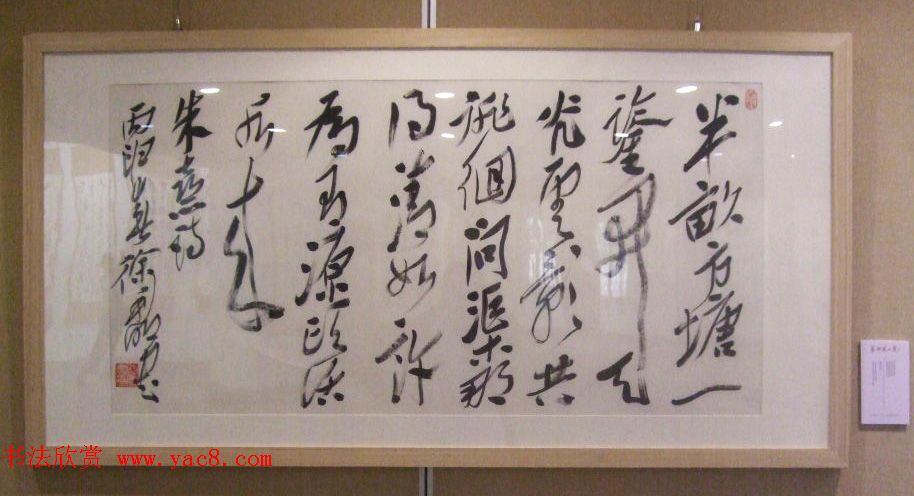 半畝方塘一
鑒開天
光雲影共
徘徊问渠那
得清如许
为有源头活
水来
朱熹诗
春徐
书法欣赏 www.yac8.com